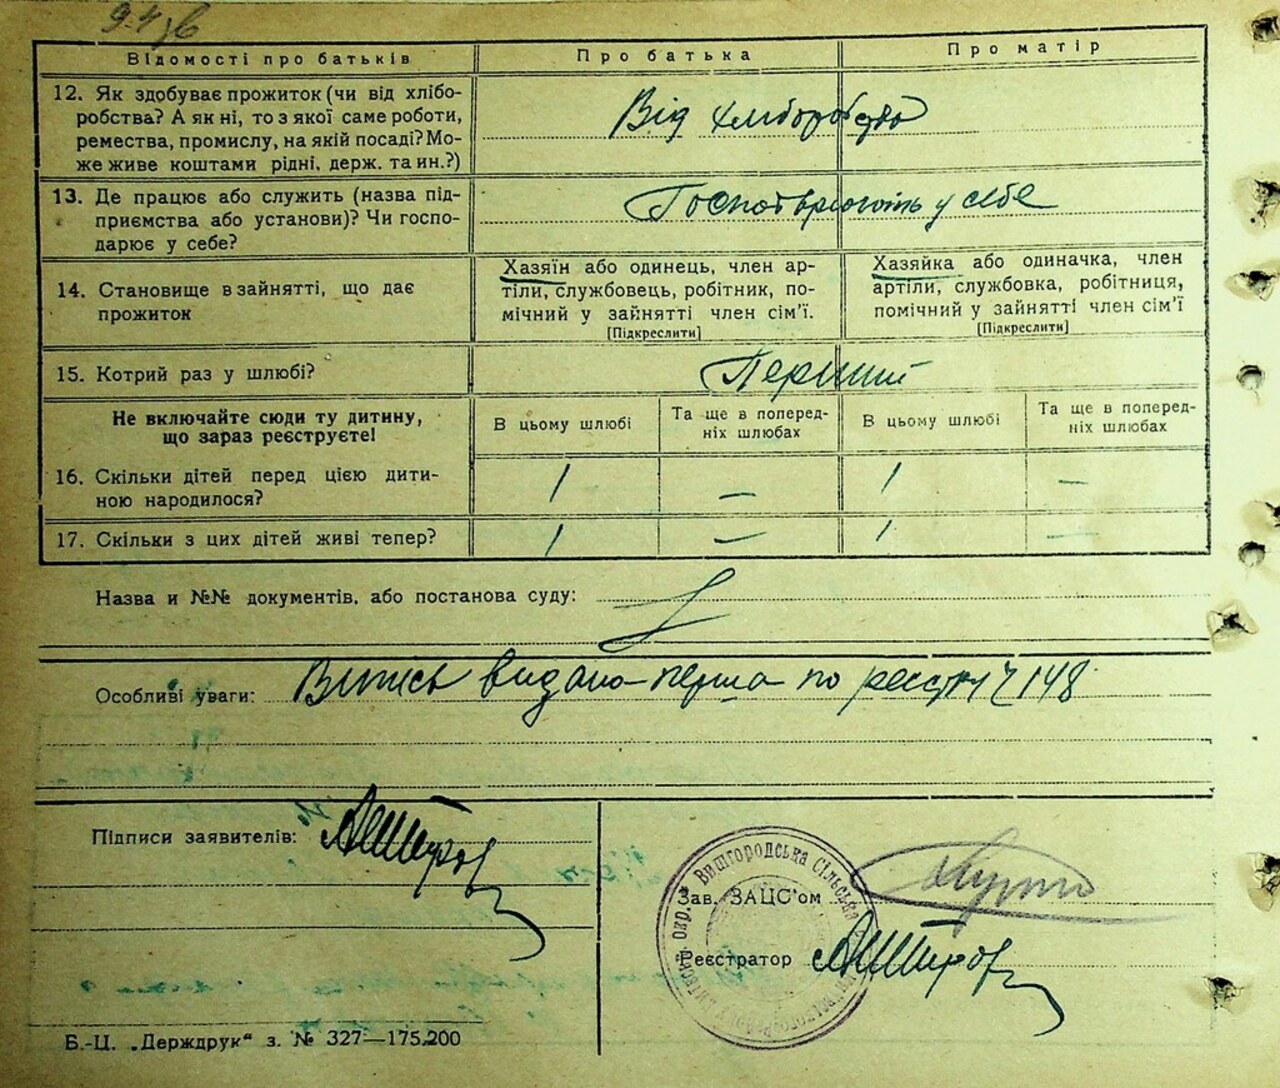 Відомості про батьків
Про батька
Про матір
12. Як здобуває прожиток (чи від хлібо-
робства? А як ні, то з якої саме роботи,
ремества, промислу, на якій посаді? Мо-
же живе коштами рідні, держ. та ин.?)
Від хліборобства
13. Де працює або служить (назва під-
приємства або установи)? Чи госпо-
дарює у себе?
у себе
14. Становище в зайнятті, що дає
прожиток
Хазяїн або одинець, член ар-
тіли, службовець, робітник, по-
мічний у зайнятті член сім'ї.
[Підкреслити]
Хазяйка або одиначка, член
артіли, службовка, робітниця,
помічний у зайнятті член сім'ї
[Підкреслити]
15. Котрий раз у шлюбі?
Перший
Не включайте сюди ту дитину,
що зараз реєструєте!
В цьому шлюбі
Та ще в поперед-
ніх шлюбах
В цьому шлюбі
Та ще в поперед-
ніх шлюбах
16. Скільки дітей перед цією дити-
ною народилося?
1 — 1 —
17. Скільки з цих дітей живі тепер?
1 — 1 —
Назва и №№ документів, або постанова суду:
Особливі уваги: Випись видано перша по реєстру Ч 148
Підписи заявителів:
Вишгородська Сільська
окр.
Зав. ЗАЦС'ом
Реєстратор
Б.-Ц. „Держдрук“ з. № 327—175.200